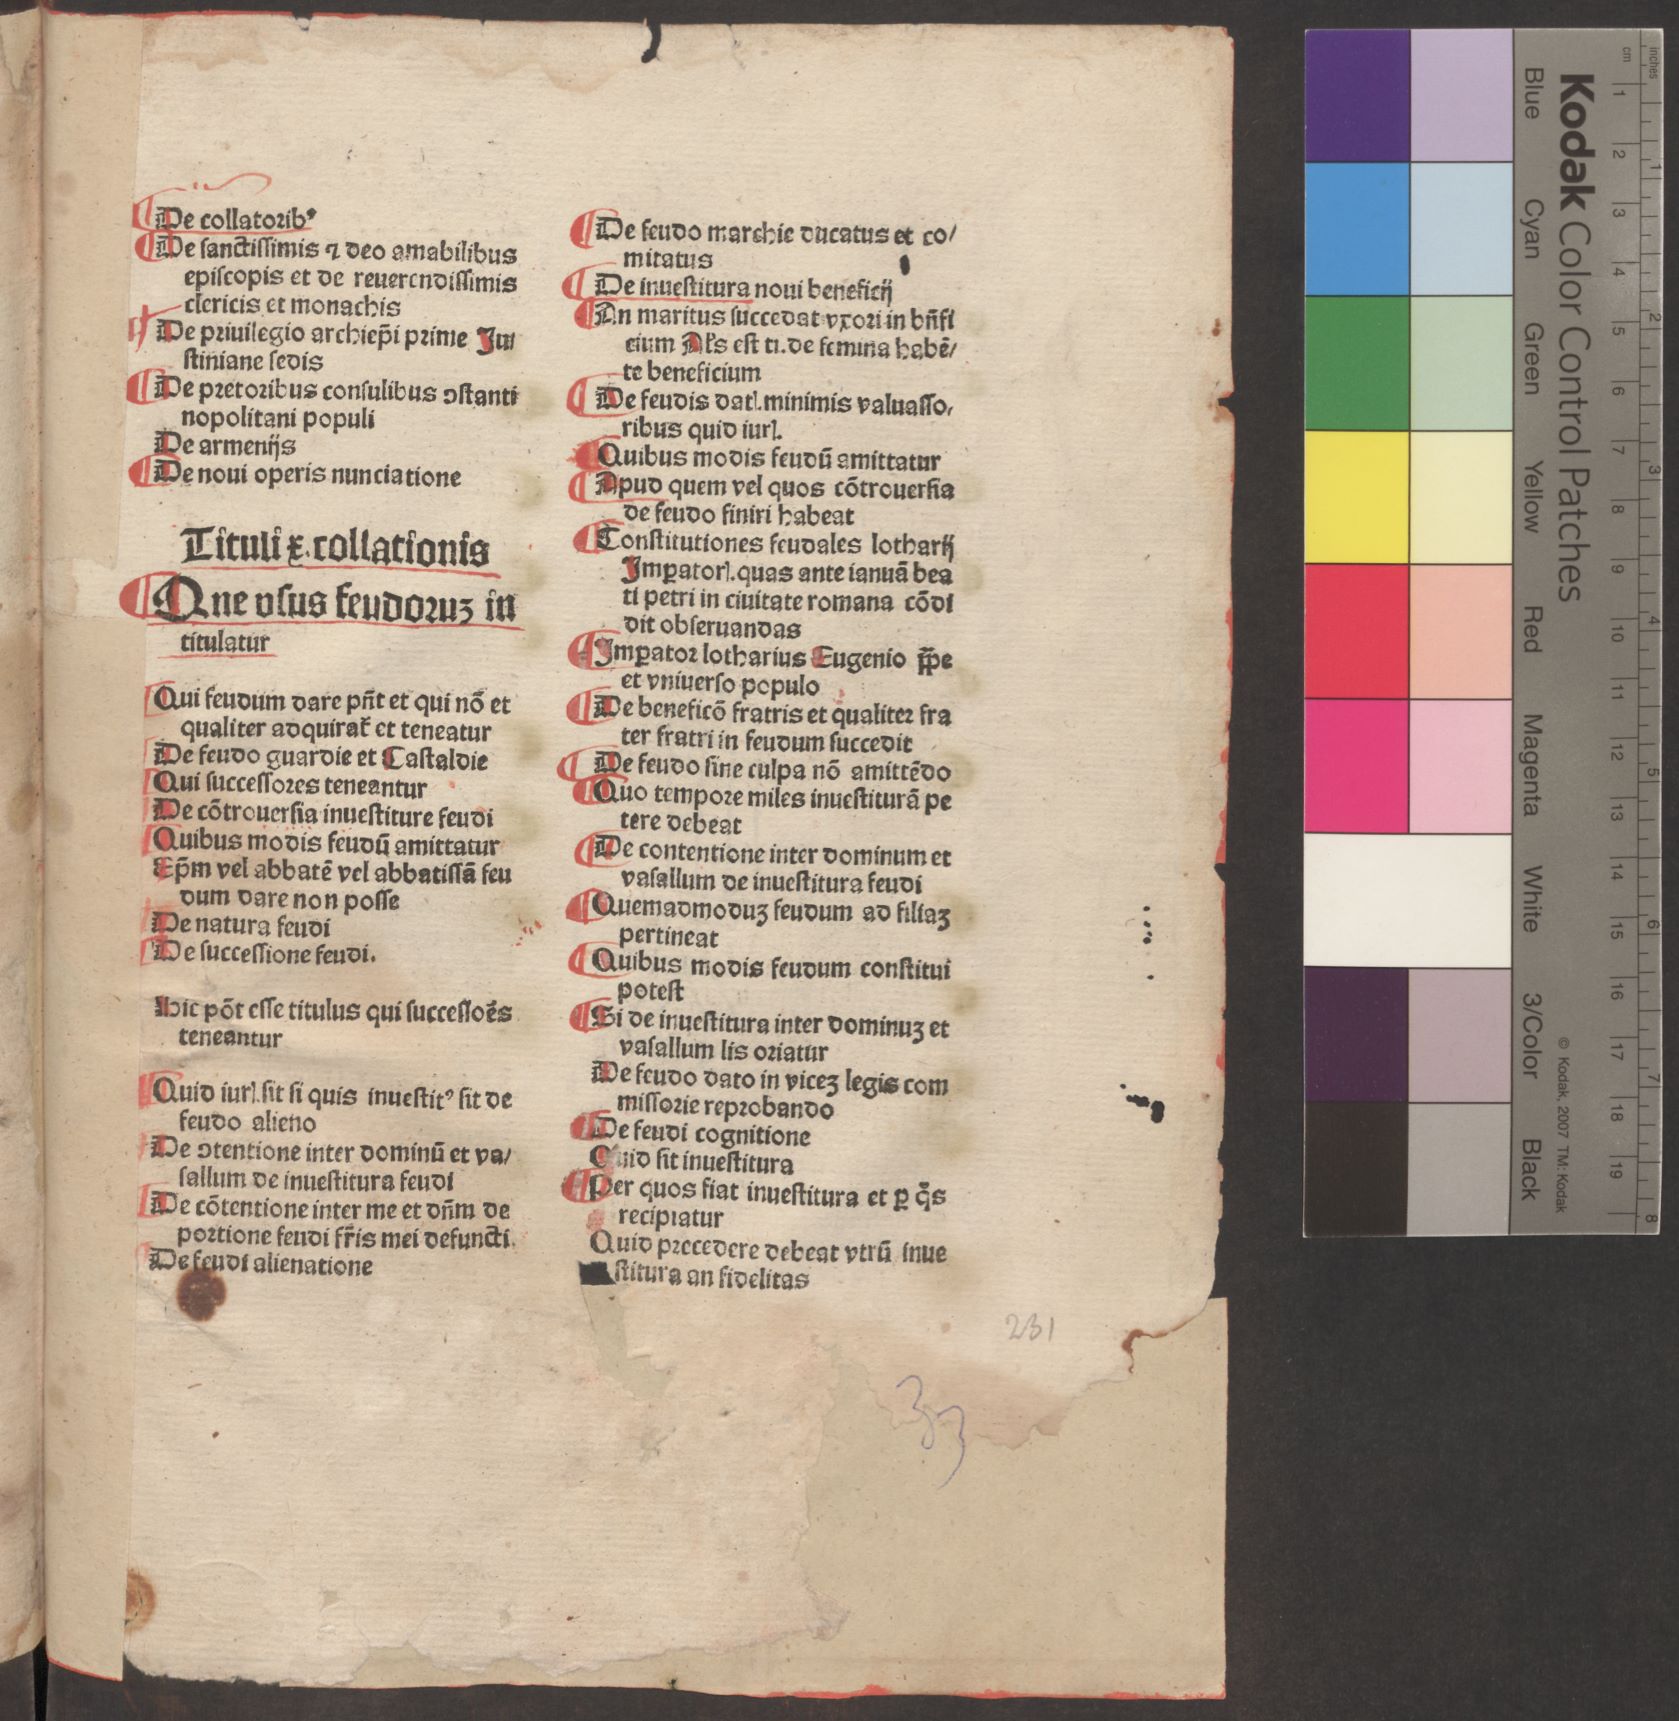 De collatorib⁹
De sanctissimis ⁊ deo amabilibus
episcopis et de reuerendissimis
clericis et monachis
De priuilegio archiep̄i prime Iu/
stiniane sedis
De pretoribus consulibus ↄstanti
nopolitani populi
De armenijs
De noui operis nunciatione
Tituli x. collationis
Que vsus feudoruꝫ in
titulatur
Qui feudum dare pn̄t et qui nō et
qualiter adquirat̄ et teneatur
De feudo guardie et Castaldie
Qui successores teneantur
De cōtrouersia inuestiture feudi
Quibus modis feudū amittatur
Ep̄m vel abbatē vel abbatissā feu
dum dare non posse
De natura feudi
De successione feudi.
Hic pōt esse titulus qui successoēs
teneantur
Quid iurꝭ. sit si quis inuestit⁹ sit de
feudo alieno
De ↄtentione inter dominū et va/
sallum de inuestitura feudi
De cōtentione inter me et dn̄m de
portione feudi fr̄is mei defuncti.
De feudi alienatione
De feudo marchie ducatus et co/
mitatus
De inuestitura noui beneficij
An maritus succedat vxori in bn̄fi
cium Al's est ti. de femina habē/
te beneficium
De feudis datꝭ. minimis valuasso,
ribus quid iurꝭ.
Quibus modis feudū amittatur
Apud quem vel quos cōtrouersia
de feudo finiri habeat
Constitutiones feudales lotharij
Imꝑatorꝭ. quas ante ianuā bea
ti petri in ciuitate romana cōdi
dit obseruandas
Imꝑator lotharius Eugenio p̄pe
et vniuerso populo
De beneficō fratris et qualiter fra
ter fratri in feudum succedit
De feudo sine culpa nō amittēdo
Quo tempore miles inuestiturā pe
tere debeat
De contentione inter dominum et
vasallum de inuestitura feudi
Quemadmoduꝫ feudum ad filiaꝫ
pertineat
Quibus modis feudum constitui
potest
Si de inuestitura inter dominuꝫ et
vasallum lis oriatur
De feudo dato in viceꝫ legis com
missorie reprobando
De feudi cognitione
Quid sit inuestitura
Per quos fiat inuestitura et ꝑ q̊s
recipiatur
Quid precedere debeat vtrū inue
stitura an fidelitas
231
33
Kodak Color Control Patches
Blue Cyan Green Yellow Red Magenta White 3/Color Black
© Kodak, 2007 TM: Kodak
inches 1 2 3 4 5 6 7 8
cm 1 2 3 4 5 6 7 8 9 10 11 12 13 14 15 16 17 18 19